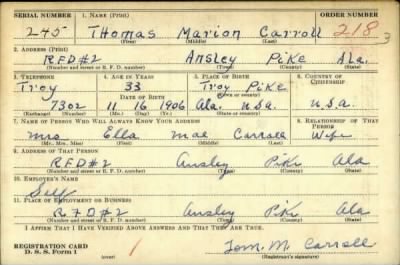 SERIAL NUMBER 1. NAME (Print) ORDER NUMBER
245 Thomas Marion Carroll 218
(First) (Middle) (Last) 3
2. ADDRESS (Print)
RFD#2 Ansley Pike Ala.
(Number and street or R. F. D. number) (Town) (County) (State)
3. TELEPHONE 4. AGE IN YEARS 5. PLACE OF BIRTH 6. COUNTRY OF CITIZENSHIP
Troy 33 Troy Pike
DATE OF BIRTH (Town or county)
7302 11 16 1906 Ala. U.S.A. U.S.A.
(Exchange) (Number) (Mo.) (Day) (Yr.) (State or country)
7. NAME OF PERSON WHO WILL ALWAYS KNOW YOUR ADDRESS 8. RELATIONSHIP OF THAT PERSON
Mrs Ella Mae Carroll Wife
(Mr., Mrs., Miss) (First) (Middle) (Last)
9. ADDRESS OF THAT PERSON
RFD#2 Ansley Pike Ala
(Number and street or R. F. D. number) (Town) (County) (State)
10. EMPLOYER'S NAME
Self
11. PLACE OF EMPLOYMENT OR BUSINESS
RFD#2 Ansley Pike Ala
(Number and street or R. F. D. number) (Town) (County) (State)
I AFFIRM THAT I HAVE VERIFIED ABOVE ANSWERS AND THAT THEY ARE TRUE.
REGISTRATION CARD
D. S. S. Form 1 (over) Tom. M. Carroll
(Registrant's signature)